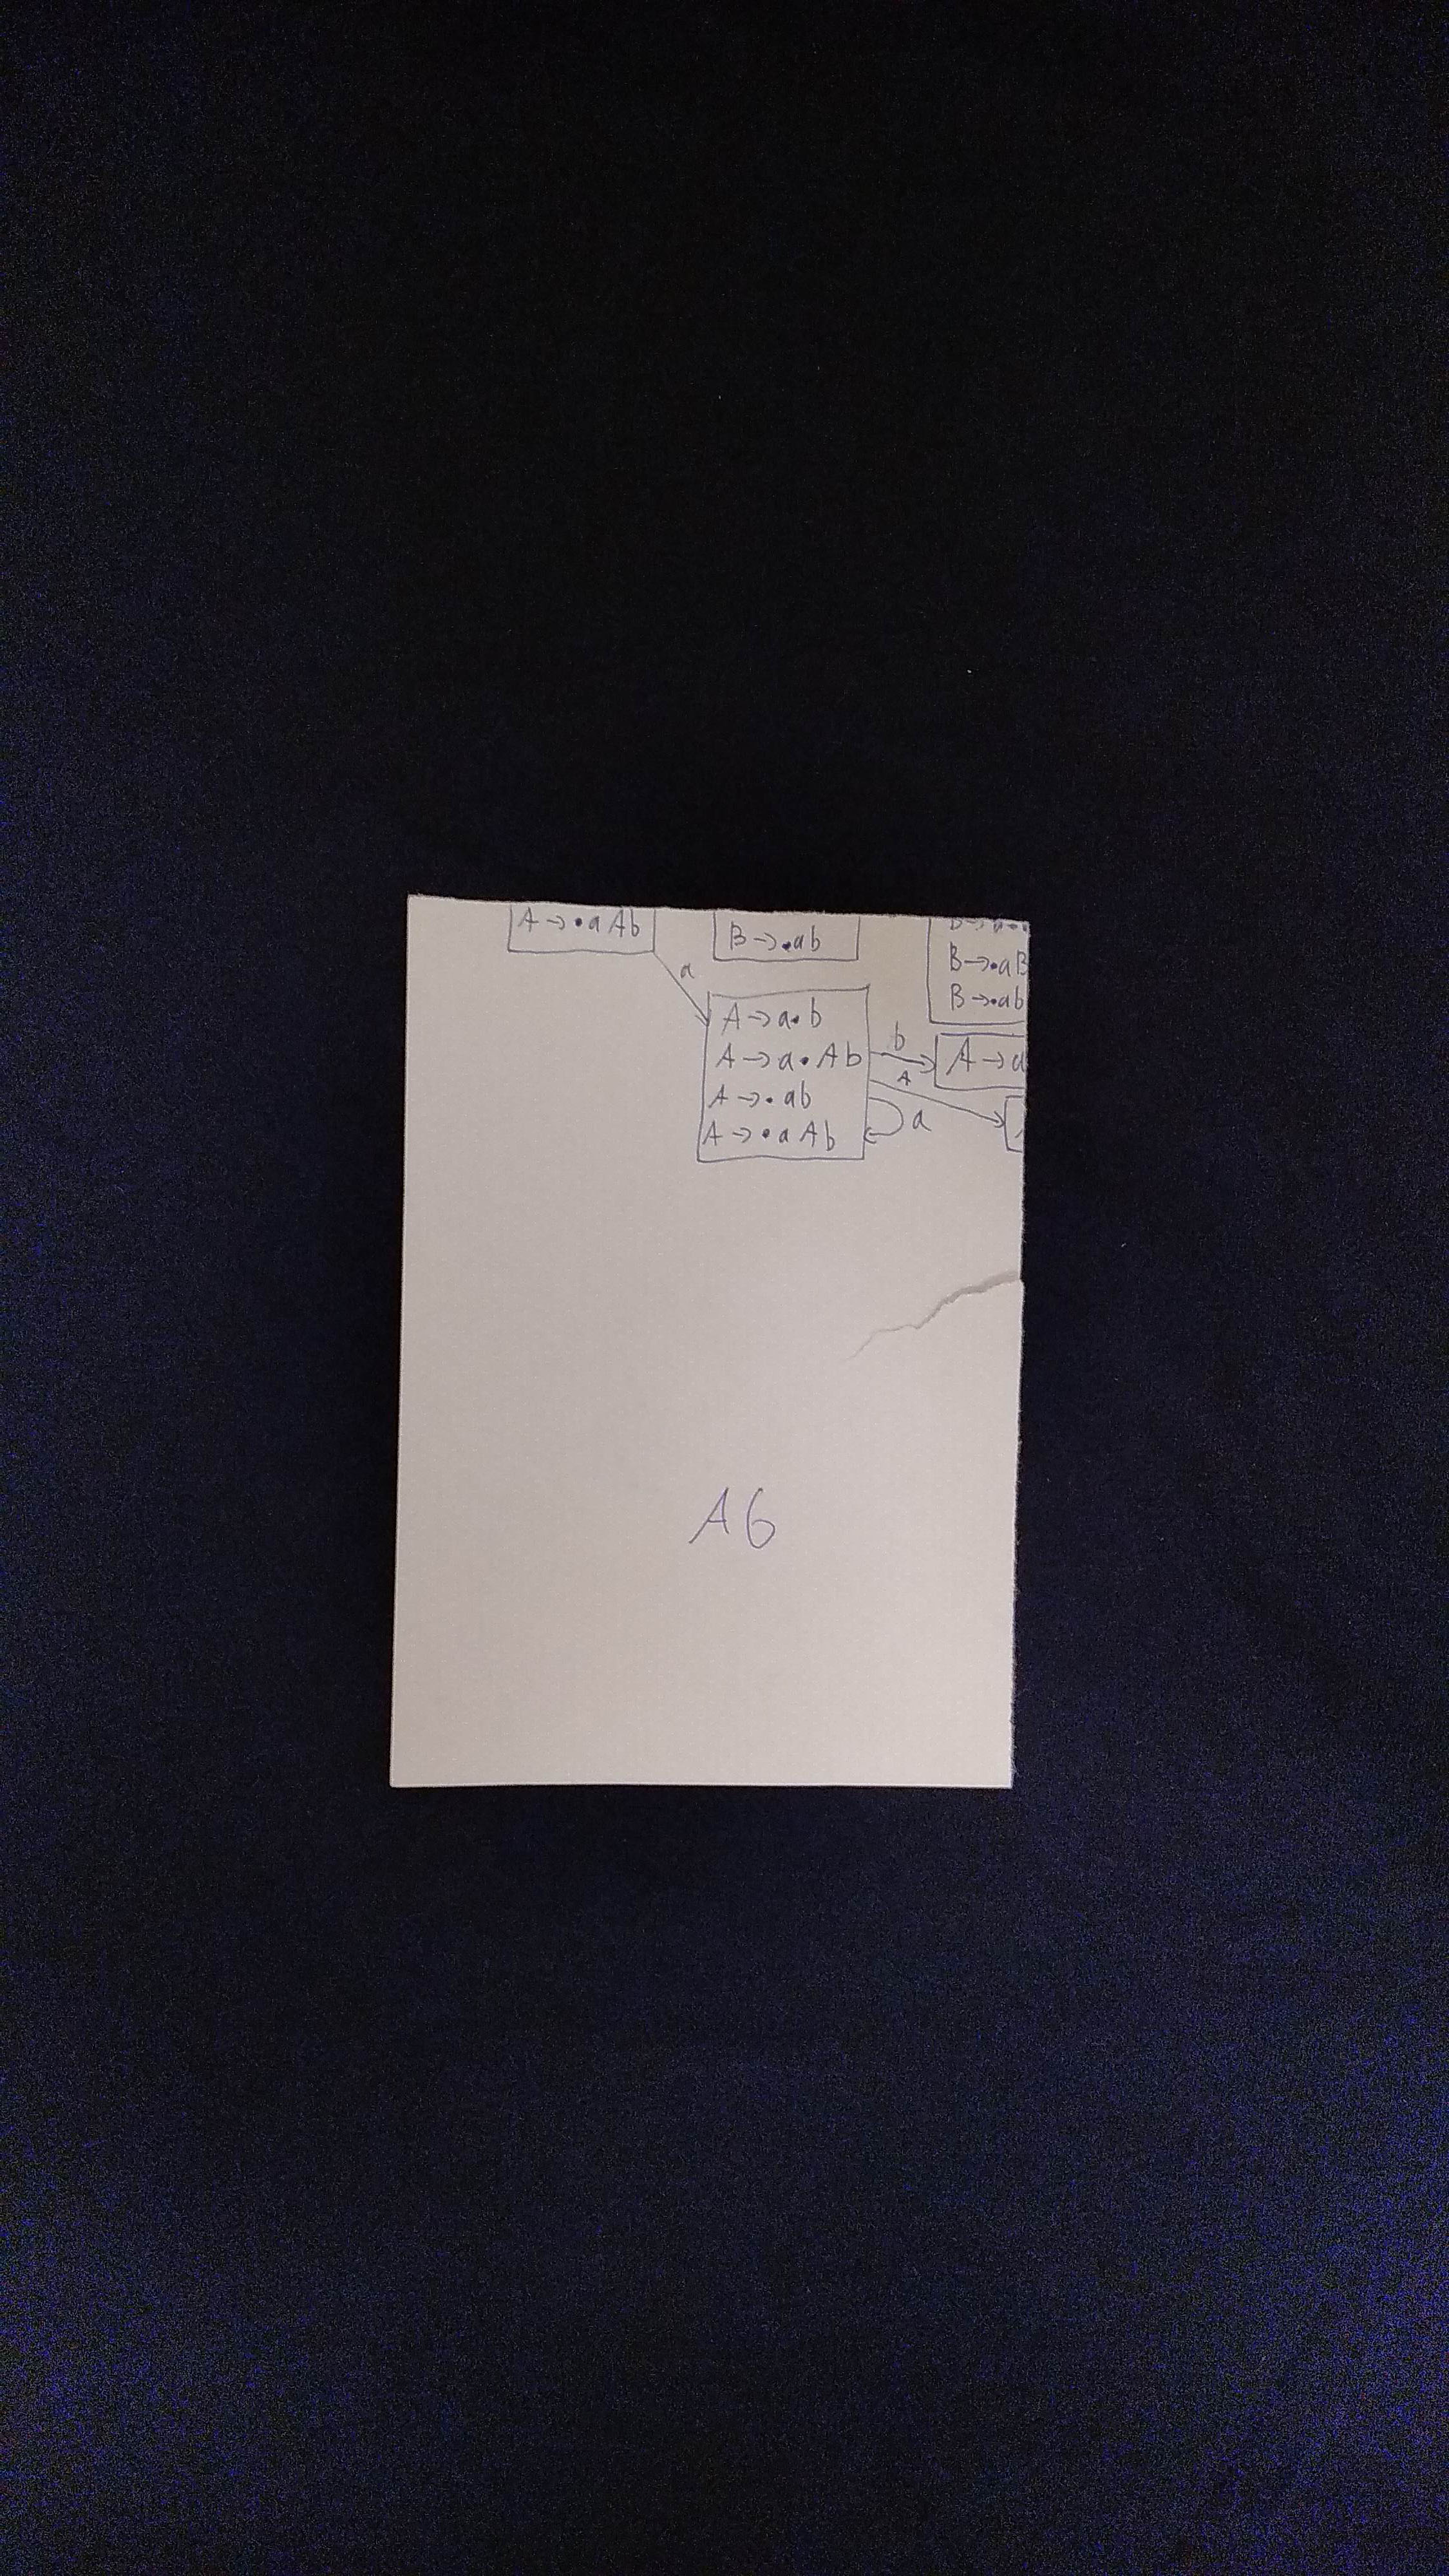 A → •aAb
B → •ab
a
B → •aB
B → •ab
A → a•b
A → a•Ab
A → •ab
A → •aAb
b
A → a
A
a
A6